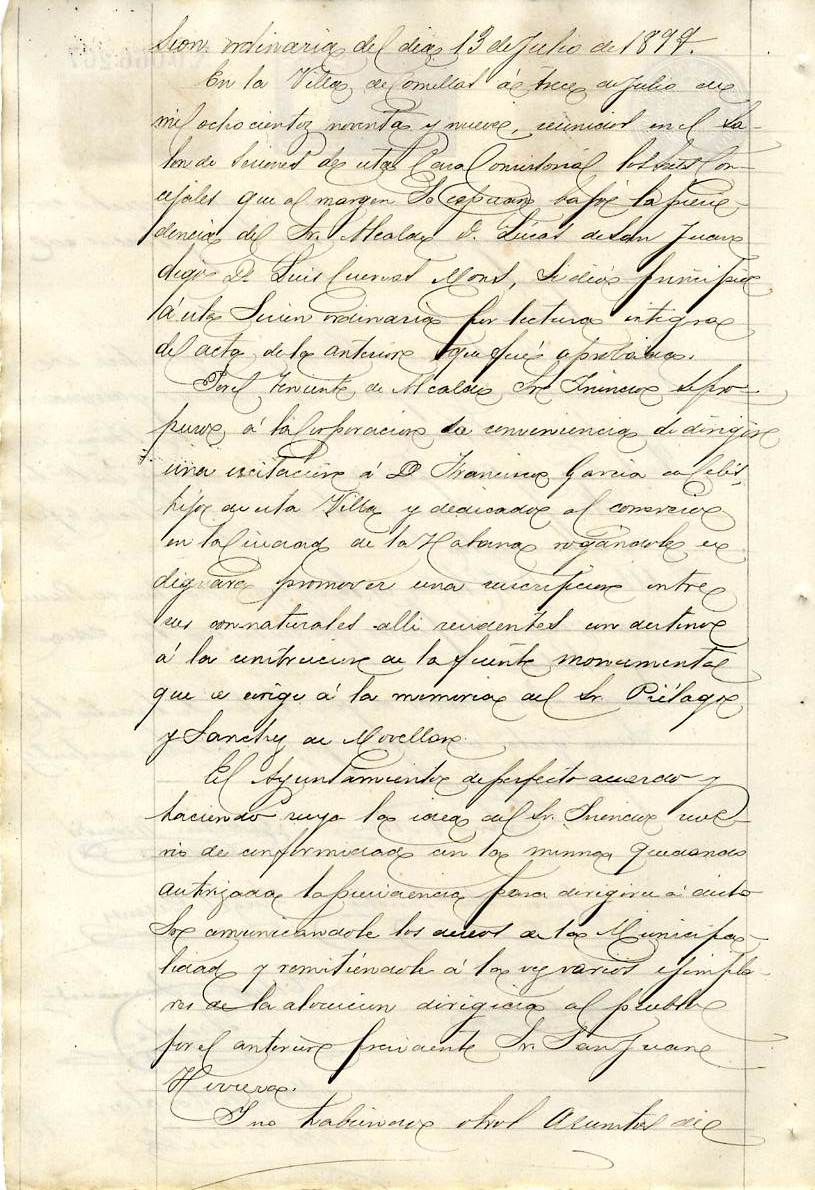 Sion ordinaria del dia 13 de Julio de 1899.
En la Villa de Comillas á trece de Julio de
mil ochocientos noventa y nueve, reunidos en el Sa-
lon de Sesiones de esta Casa Consistorial los Sres Con-
cejales que al margen Se espresan bajo la presi-
dencia del Sr. Alcalde D. Lucas de San Juan
digo D. Luis Cuevas Mons, Se dió principio
á esta Sesion ordinaria por lectura integra
del acta de la anterior que fué aprobada.
Por el Teniente de Alcalde Sr. se pro-
puso á la Corporacion la conveniencia de dirigir
una escitacion á D Francisco Garcia de Celis,
hijo de esta Villa y dedicado al comercio
en la Ciudad de la Habana rogandole se
dignara promover una suscripcion entre
sus con-naturales alli residentes con destino
á la construccion de la fuente monumental
que se erige á la memoria del Sr. Piélago
y Sanchez de Movellan.
El Ayuntamiento de perfecto acuerdo y
haciendo suya la idea del Sr. resol-
vio de conformidad con la misma, quedando
autorizada la presidencia para dirigirse á dicho
Sor comunicandole los deseos de la Municipa-
lidad y remitiéndole á la vez varios ejempla-
res de la alocucion dirigida al pueblo
por el anterior presidente Sr. San Juan
Herrera.
I no habiendo otros Asuntos de